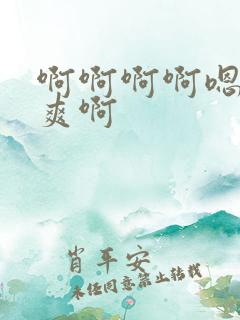 啊啊啊啊嗯
爽啊
肖平安
未经同意禁止转载